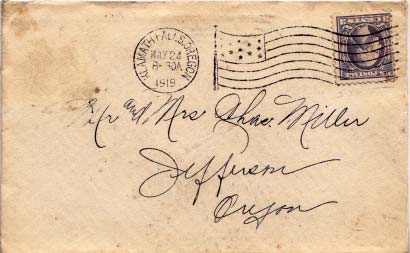 KLAMATH FALLS, OREGON
MAY 24
8-30A
1919
Mr and Mrs Chas. Miller
Jefferson
Oregon